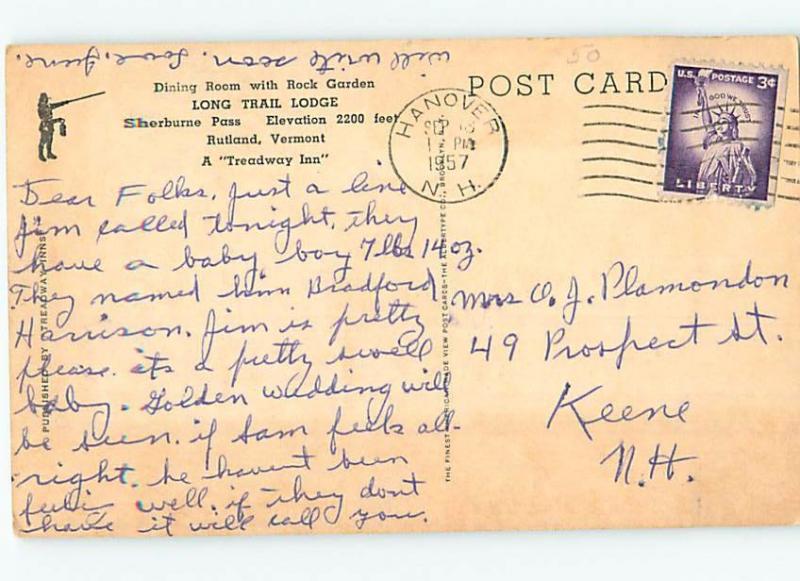 will write soon. Love, June.
50
Dining Room with Rock Garden
LONG TRAIL LODGE
Sherburne Pass Elevation 2200 feet
Rutland, Vermont
A "Treadway Inn"
POST CARD
HANOVER
SEP
PM
1957
N.H.
U.S. POSTAGE 3¢
IN GOD WE TRUST
LIBERTY
Dear Folks, Just a line
Jim called tonight, they
have a baby boy 7 lbs 14 oz.
They named him Bradford
Harrison. Jim is pretty
please. its a pretty swell
baby. Golden wedding will
be seen. if Sam feels all-
right. he havent been
feelin well. if they dont
have it will call you.
PUBLISHED BY TREADWAY INNS
THE FINEST AMERICAN MADE VIEW POST CARDS—THE ALBERTYPE CO., BROOKLYN, N.Y.
Mrs O. J. Plamondon
49 Prospect St.
Keene
N.H.